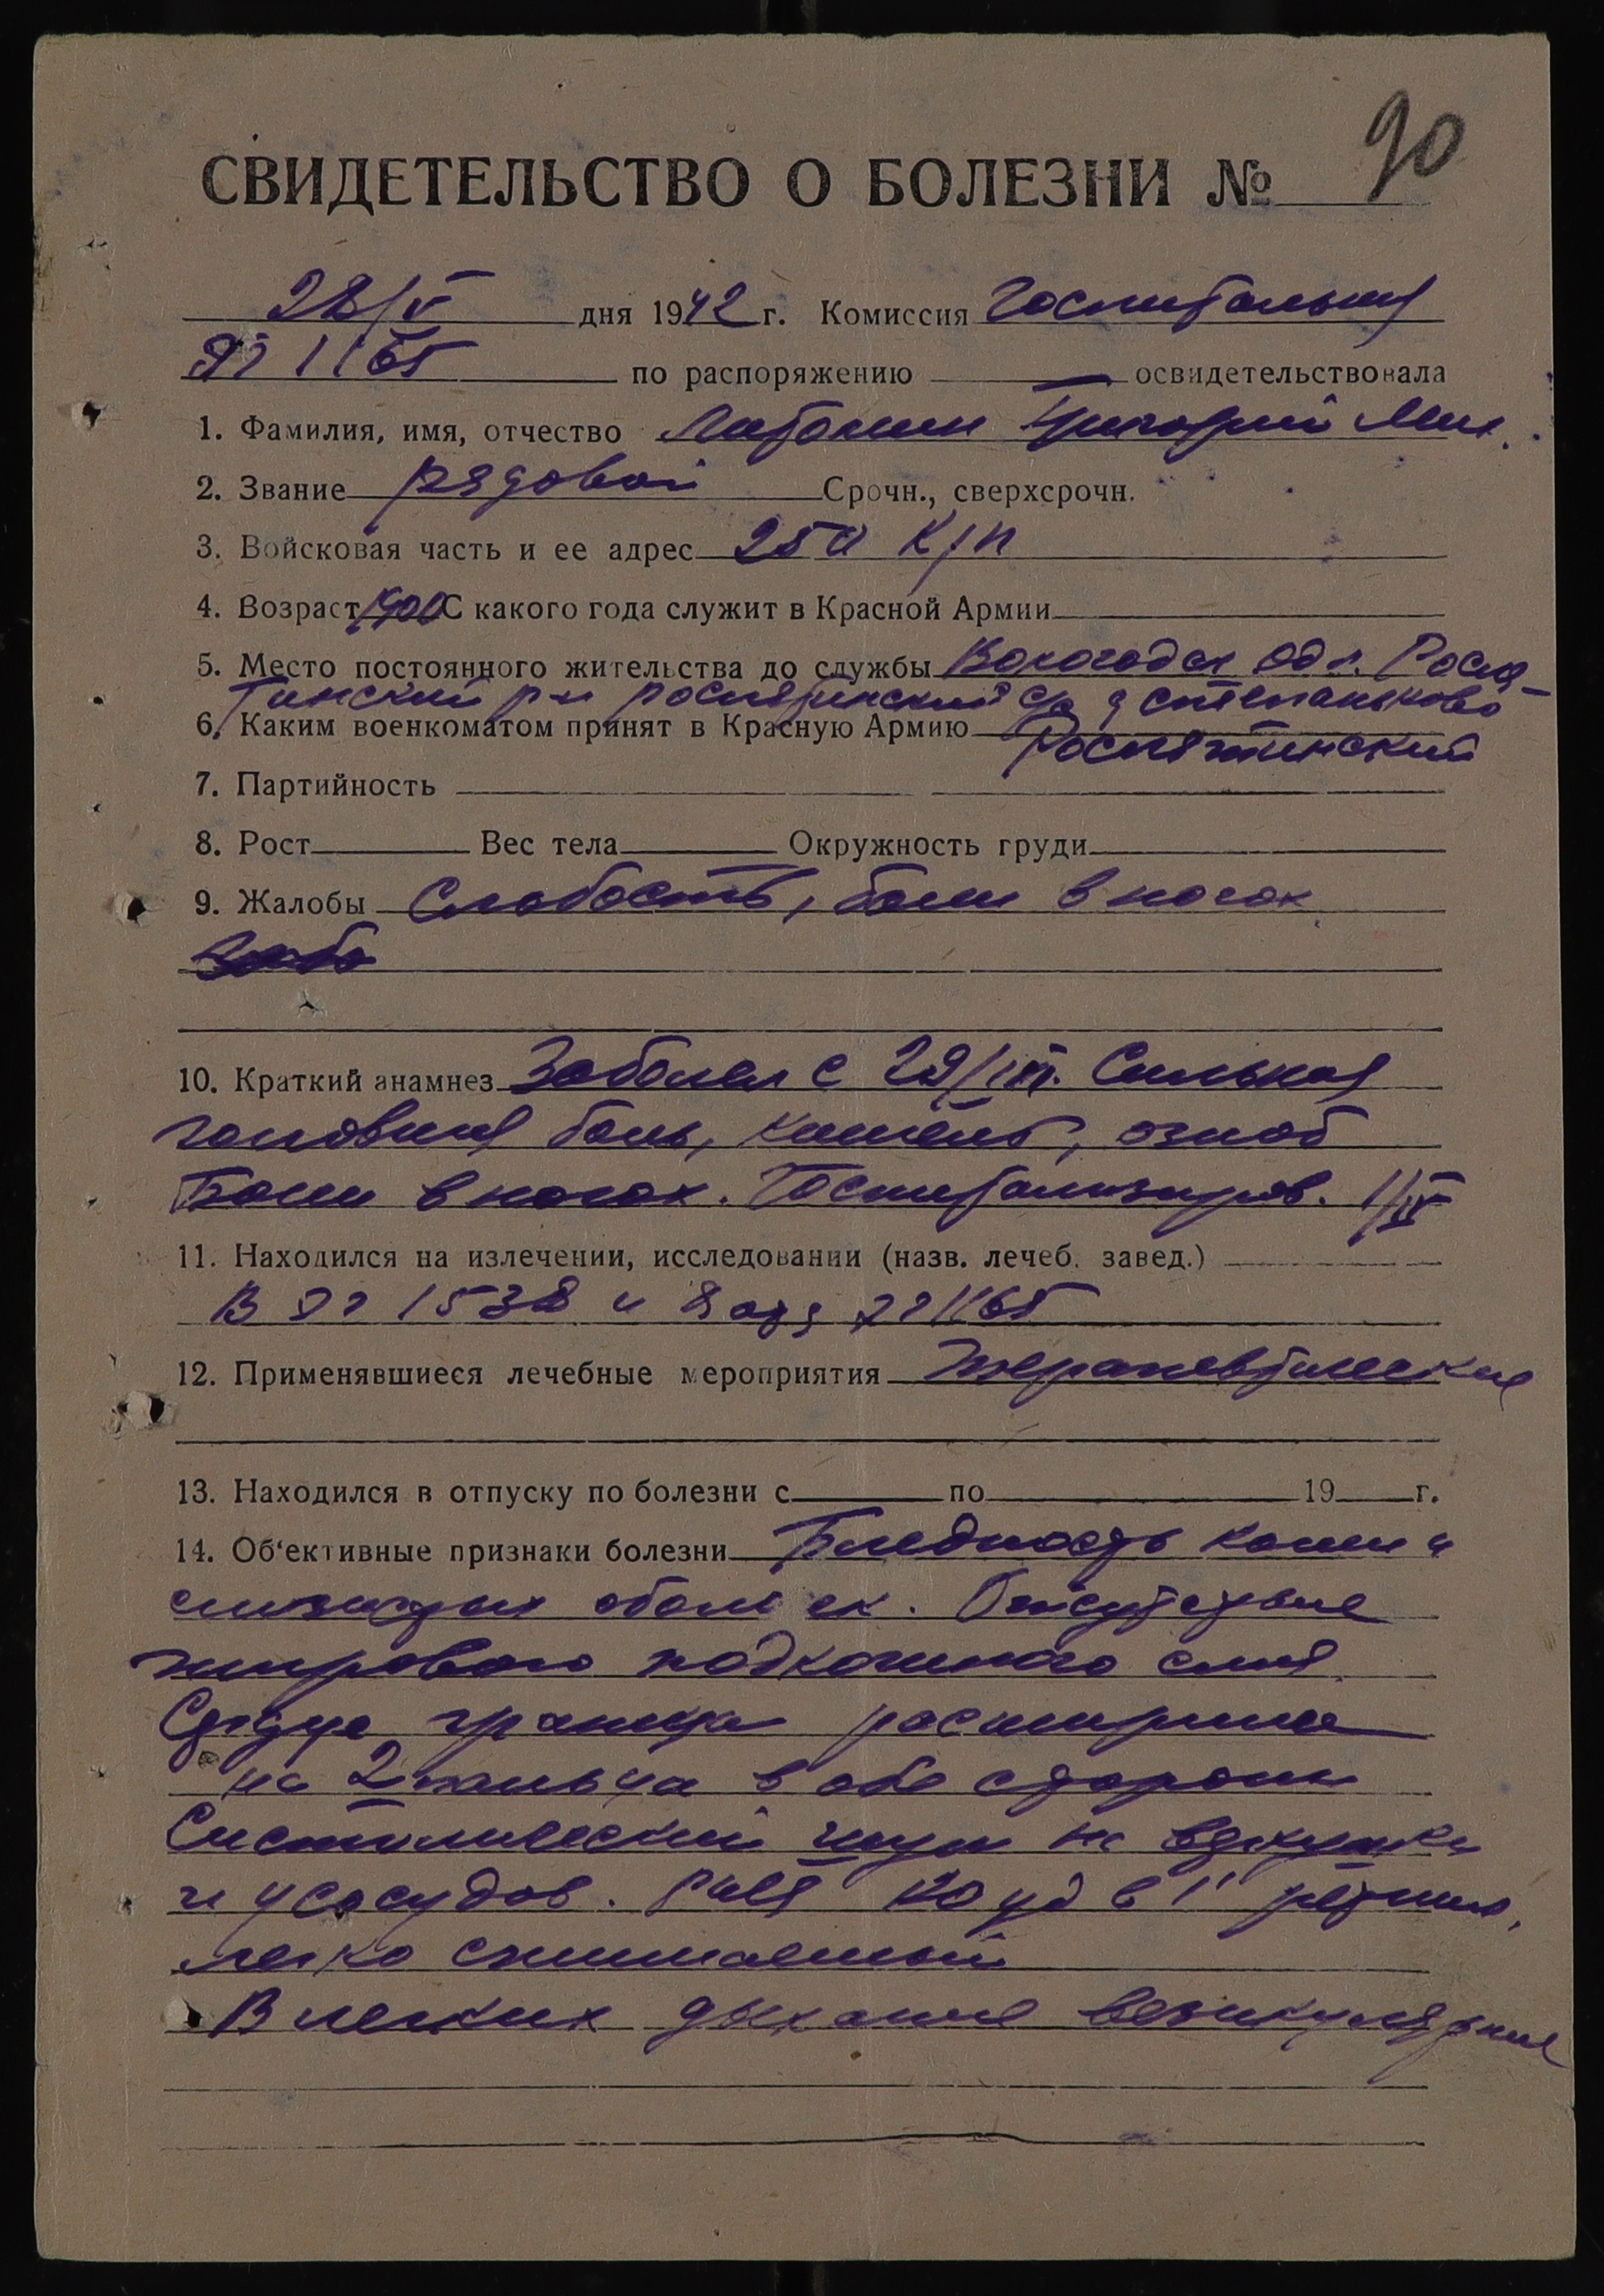 СВИДЕТЕЛЬСТВО О БОЛЕЗНИ № 90
28/V дня 1942 г. Комиссия Госпитальная
ЭГ 1165 по распоряжению — освидетельствовала
1. Фамилия, имя, отчество Григорий Мих.
2. Звание рядовой Срочн., сверхсрочн.
3. Войсковая часть и ее адрес 250
4. Возраст 1900 С какого года служит в Красной Армии
5. Место постоянного жительства до службы Вологодск обл. Росля-
тинский р-н рослятинский с/с д степаньково
6. Каким военкоматом принят в Красную Армию Рослятинский
7. Партийность
8. Рост Вес тела Окружность груди
9. Жалобы Слабость, боли в ногах
10. Краткий анамнез Заболел с 29/III. Сильная
головная боль, кашель, озноб
Боли в ногах. Госпитализиров. 1/IV
11. Находился на излечении, исследовании (назв. лечеб. завед.)
В ЭГ 1538 и ЭГ 1165
12. Применявшиеся лечебные мероприятия Терапевтические
13. Находился в отпуску по болезни с по 19 г.
14. Об‘ективные признаки болезни Бледность кожи и
слизистых оболочек. Отсутствие
жирового подкожного слоя
Сердце граница расширены
на 2 пальца в обе стороны
Систолический шум на верхушке
и у сосудов. Puls 120 уд в 1'
легко сжимаемый
В легких дыхание везикулярное